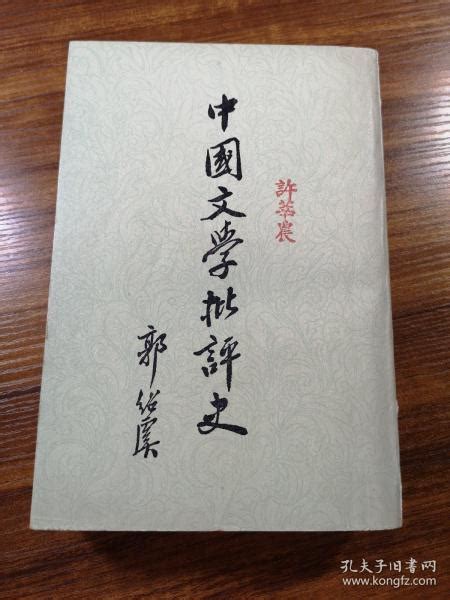 許莘農
中國文學批評史
郭紹虞
孔夫子旧书网
www.kongfz.com